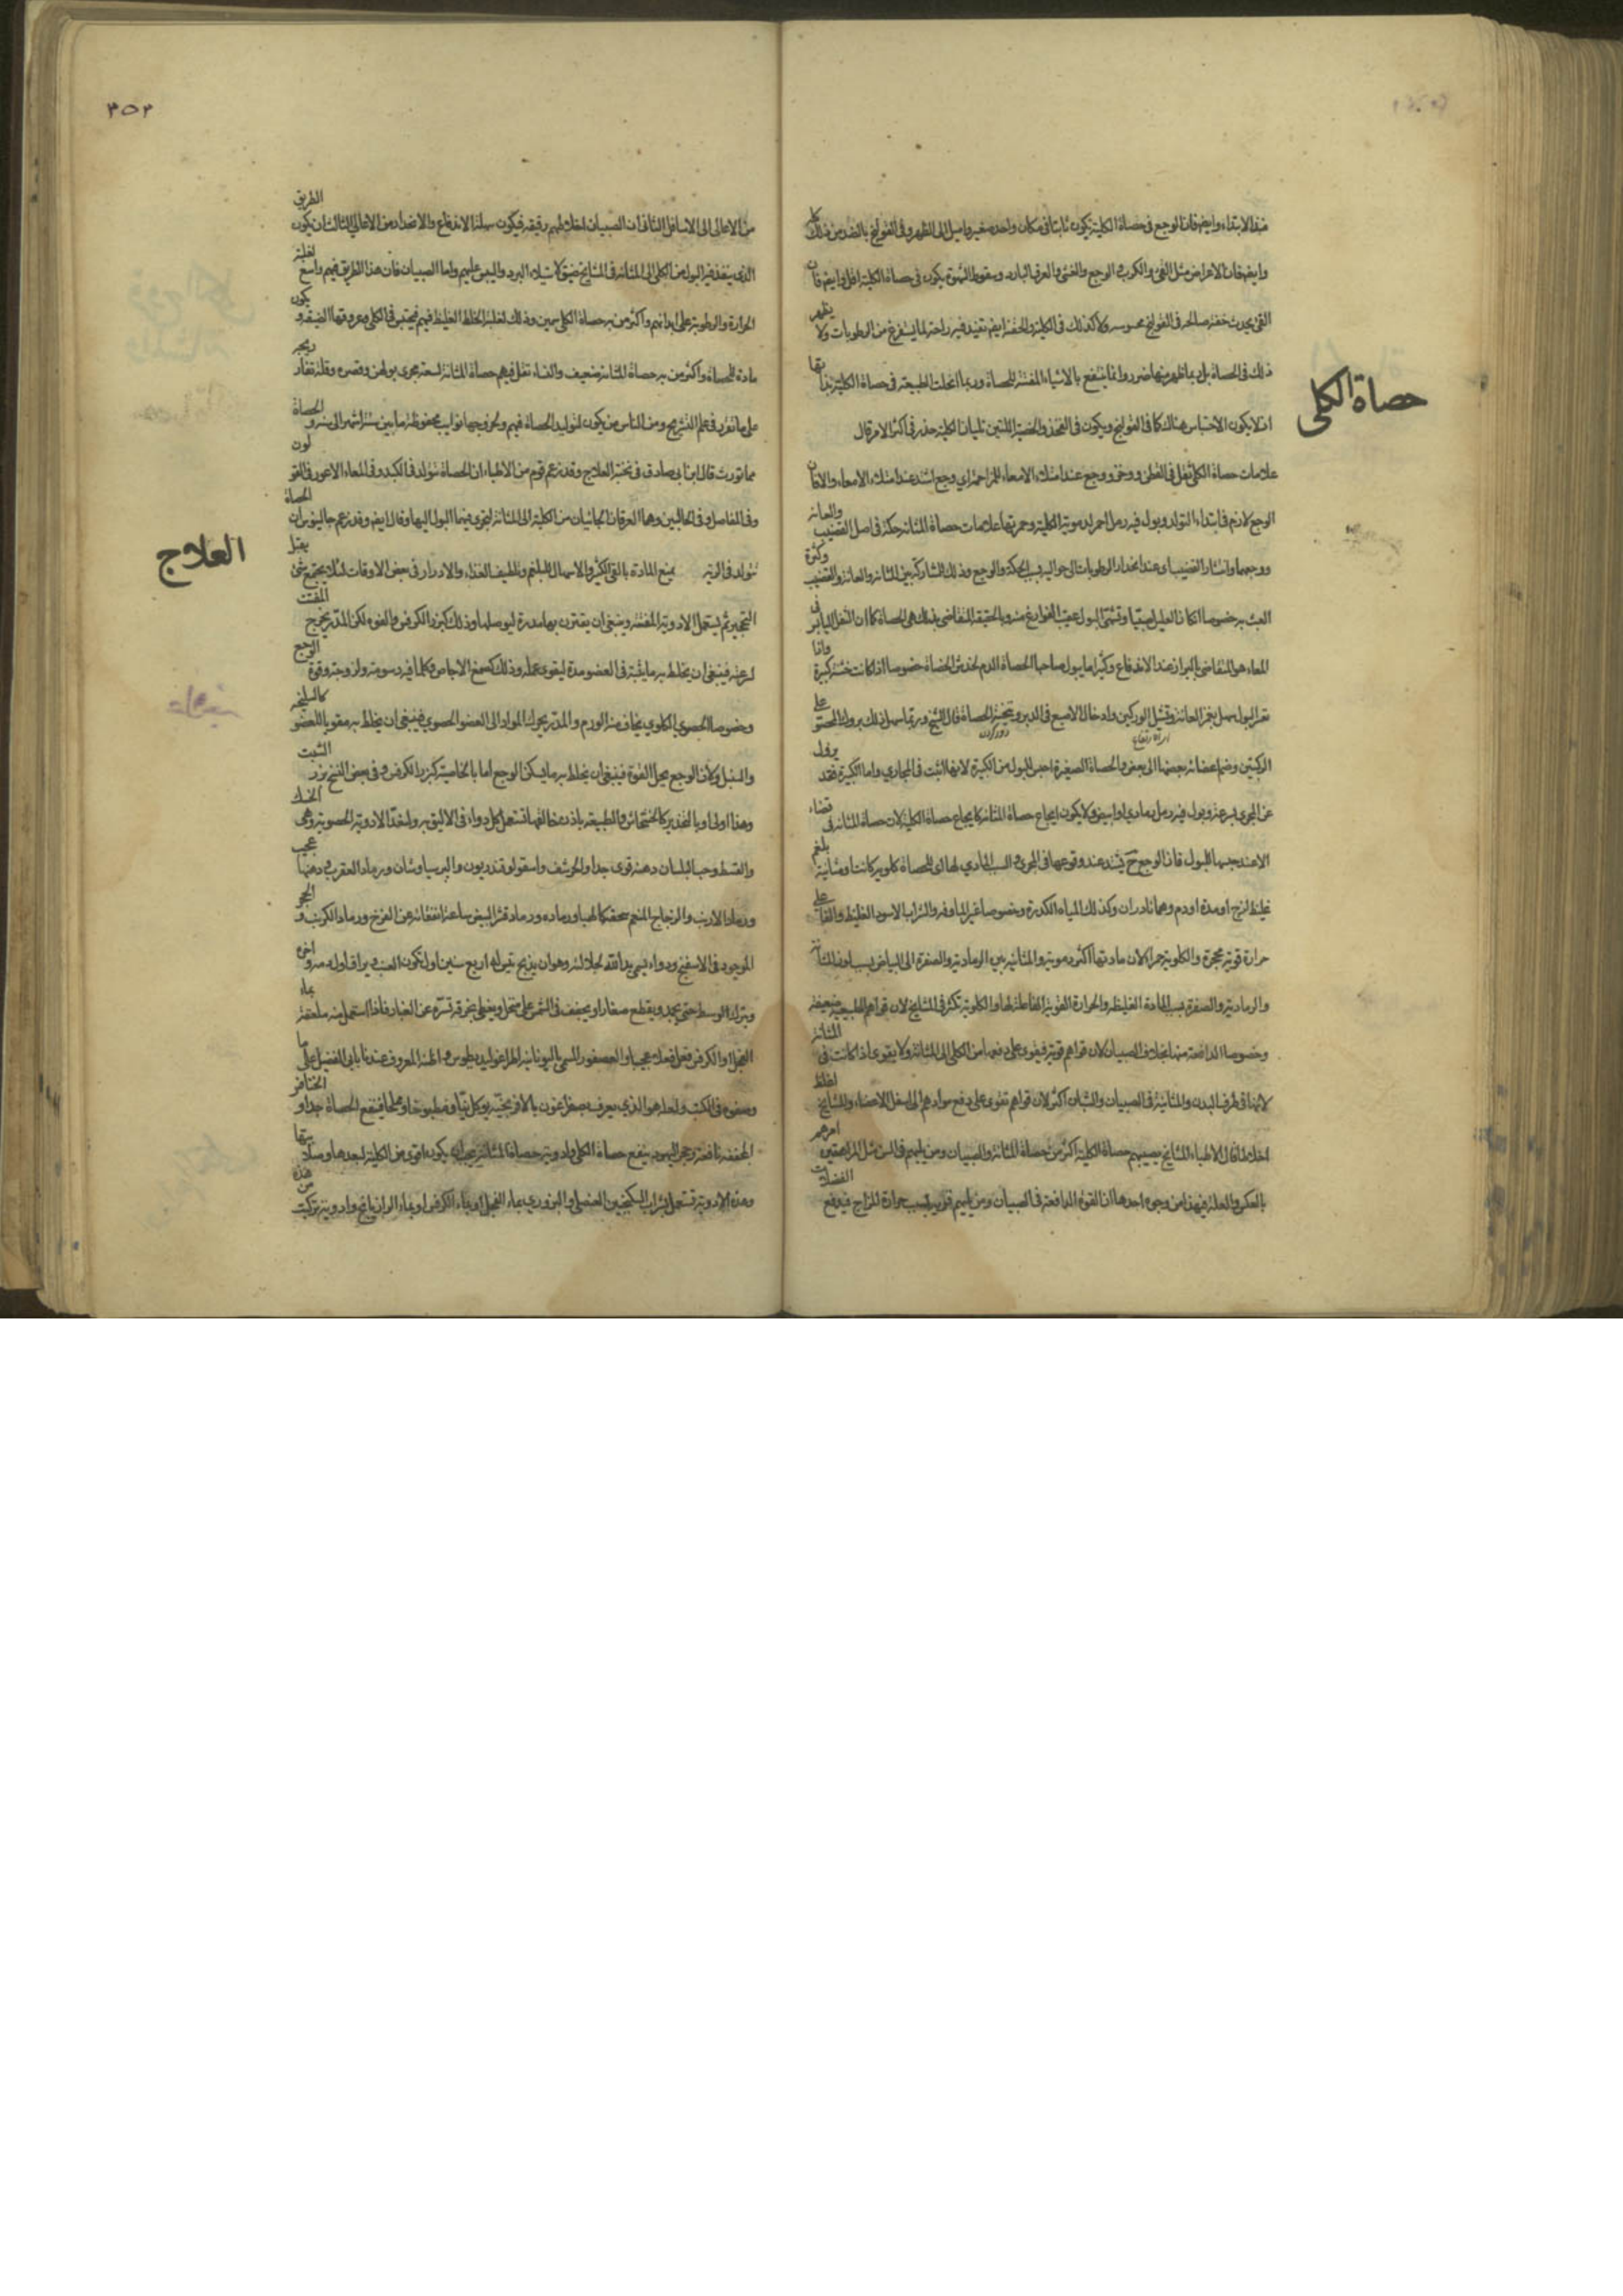 منذ الابتداء وايضا فان الوجع في حصاة الكلية يكون ثابتا في مكان واحد صغير واميل الى الظهر وفي القولنج بالضد من ذلك
وايضا فان الاعراض مثل القئ والكرب والوجع والغشي والعرق البارد وسقوط الشهوة يكون في حصاة الكلية اقل وايضا فان
القئ يحدث خفة صالحة في القولنج محسوسة ولا كذلك في الكلية والحقنة ايضا تفيد فيه راحة لما يستفرغ من الرطوبات ولا يظهر
ذلك في الحصاة بل ربما ظهر منها ضرر وانما ينتفع بالاشياء المفتتة للحصاة وربما انحلت الطبيعة في حصاة الكلية بذاتها
اذ لا يكون الاحتباس هناك كما في القولنج ويكون في الفخذ والخصية اللتين تليان الكلية خدر في اكثر الامر قال
حصاة الكلى
علامات حصاة الكلى ثقل في القطن ووخز ووجع عند امتلاء الامعاء للمزاحمة اي وجع اشد عند امتلاء الامعاء والا فان
الوجع لازم في ابتداء التولد وبول فيه رمل احمر لدموية الكلية وحمرتها علامات حصاة المثانة حكة في اصل القضيب والعانة
ووجعهما وانتشار القضيب اي عند انحدار الرطوبات الى حواليه بسبب الحكة والوجع وذلك للمشاركة بين المثانة والعانة والقضيب وكثرة
العبث به خصوصا اذا كان العليل صبيا وتشهي البول عقيب الفراغ منه وبالحقيقة المتقاضي بذلك هي الحصاة كما ان الثفل اليابس في
المعاء هو المتقاضي بالبراز عند الاندفاع وكثيرا ما يبول صاحبها الحصاة الدم لخدش الحصاة خصوصا اذا كانت خشنة كبيرة واذا
تعسر البول سهل بغمز العانة وتشيل الوركين وادخال الاصبع في الدبر وتنحية الحصاة قال الشيخ وربما سهل ذلك بروك المحصو على
الركبتين وضم اعضائه بعضها الى بعض والحصاة الصغيرة احبس للبول من الكبيرة لانها تنشب في المجاري واما الكبيرة فقد يزول
عن المجرى بسرعة وبول فيه رمل رمادي او ابيض ولا يكون ايجاع حصاة المثانة كايجاع حصاة الكلية لان حصاة المثانة في فضاء
الا عند حبسها للبول فان الوجع ح يشتد عند وقوعها في المجرى والسبب المادي لها اي للحصاة كلوية كانت او مثانية بلغم
غليظ لزج او مدة او دم وهما نادران وكذلك المياه الكدرة وخصوصا غير المألوفة والشراب الاسود الغليظ والفاعلي
حرارة قوية محجرة والكلوية حمراء لان مادتها اكثر دموية والمثانية بين الرمادية والصفرة الى البياض بسبب لون المثانة
والرمادية والصفرة بسبب المادة الغليظة والحرارة القوية الفاعلة لها والكلوية تكثر في المشايخ لان قواهم الطبيعية ضعيفة
وخصوصا الدافعة منها بخلاف الصبيان لان قواهم قوية فيقوى على دفعها من الكلى الى المثانة ولا يقوى اذا كانت في المثانة
لانها في طرف البدن والمثانية في الصبيان والشبان اكثر لان قواهم تقوى على دفع موادهم الى اسفل الاعضاء والمشايخ اغلظ
اخلاطا قال الاطباء المشايخ يصيبهم حصاة الكلية اكثر من حصاة المثانة والصبيان ومن يليهم في السن مثل المراهقين امرهم
بالعكس والعلة فيه هذا من وجوه احدها ان القوة الدافعة في الصبيان ومن يليهم قوية بسبب حرارة المزاج فيدفع الفضلات
٣٥٣
من الاعالى الى الاسافل الثاني ان الصبيان اخلاطهم رقيقة فيكون سهلة الاندفاع والانحدار من الاعالي الثالث ان يكون الطريق
الذي ينفذ فيه البول من الكلى الى المثانة في المشايخ ضيق لاستيلاء البرد واليبس عليهم واما الصبيان فان هذا الطريق فيهم واسع لغلبة
الحرارة والرطوبة على ابدانهم واكثر من به حصاة الكلى سمين وذلك لغلبة الخلط الغليظ فيهم فيحتبس في الكلى وعروقها الضيقة و يكون
مادة للحصاة واكثر من به حصاة المثانة ضعيف والنساء تقل فيهم حصاة المثانة لسعة مجرى بولهن وقصره وقلة تعاريجه
على ما تقرر في علم التشريح ومن الناس من يكون لتوليد الحصاة فيهم وخروجها نوايب محفوظة ما بين ستة اشهر الى سنة والحصاة
مما تورث قال ابن ابي صادق في نخبة العلاج وقد زعم قوم من الاطباء ان الحصاة تتولد في الكبد وفي المعاء الاعور وفي القولون
وفي المفاصل وفي الحالبين وهما العرقان الجاثيان من الكلية الى المثانة ليجري فيهما البول اليها وقال ايضا وقد زعم جالينوس ان الحصاة
تتولد في الرية يمنع المادة بالقئ الكثير والاسهال للبلغم وتلطيف الغذاء والادرار في بعض الاوقات لئلا يجتمع شئ يقبل
العلاج
التحجير ثم يستعمل الادوية المفتتة وينبغي ان يقترن بها مدرة ليوصلها وذلك كبزر الكرفس والفوه لكن المدر يخرج المفتت
بسرعة فينبغي ان يخلط به ما يثبته في العضو مدة ليقوى عمله وذلك كصمغ الاجاص وكلما فيه دسومة ولزوجة وقوة الوجع
وخصوصا الحصوي الكلوي يخاف منه الورم والمدر يحرك المواد الى العضو الحصوي فينبغي ان يخلط به مقويا للعضو كالسليخة
والسنبل وكان الوجع يحل القوة فينبغي ان يخلط بها ما يسكن الوجع اما بالخاصية كبزر الكرفس وفي بعض النسخ بزر الشبت
وهذا اولى او بالتخدير كالخشخاش والطبيعة باذن خالقها تستعمل كل دواء في الاليق به ولنعد الادوية الحصوية وهي الحسك
والقسط وحب البلسان دهنه قوي جدا والحرشف واسقولوقندريون والبرسياوشان ورماد العقرب ودهنها عجيب
ورماد الارنب والزجاج المنعم سحقه كالهباء ورماده ورماد قشر البيض ساعة انفقائه عن الفرخ ورماد الكرنب و الحجر
الموجود في الاسفنج ودواء يسمى يد الله لجلالته وهو ان يذبح تيس له اربع سنين اول تكون العنب ويراق اول دمه واخره
ويترك الوسط حتى يجمد ويقطع صغارا ويجفف في الشمس على منخل ويغطى بخرقة تستره عن الغبار فاذا استعمل منه ملعقة بماء
الفجل او الكرفس فعل فعلا عجيبا والعصفور المسمى باليونانية اطراغوليديطوس واظنه المعروف عندنا بابي الفضيل على ما
وصفوه في الكتب ولعله هو الذي يعرف بصفراغون بالافرنجية يؤكل نيا ومطبوخا ومملحا فينفع الحصاة جدا و الخنافس
المجففة نافعة وحجر اليهود ينفع حصاة الكلى وادوية حصاة المثانة يجب ان يكون اقوى من الكلية لبعدها وصلابتها
وهذه الادوية تستعمل بشراب السكنجبين العنصلي او البزوري بماء الفجل او بماء الكرفس او بماء الرازيانج وادوية تركبت من هذه